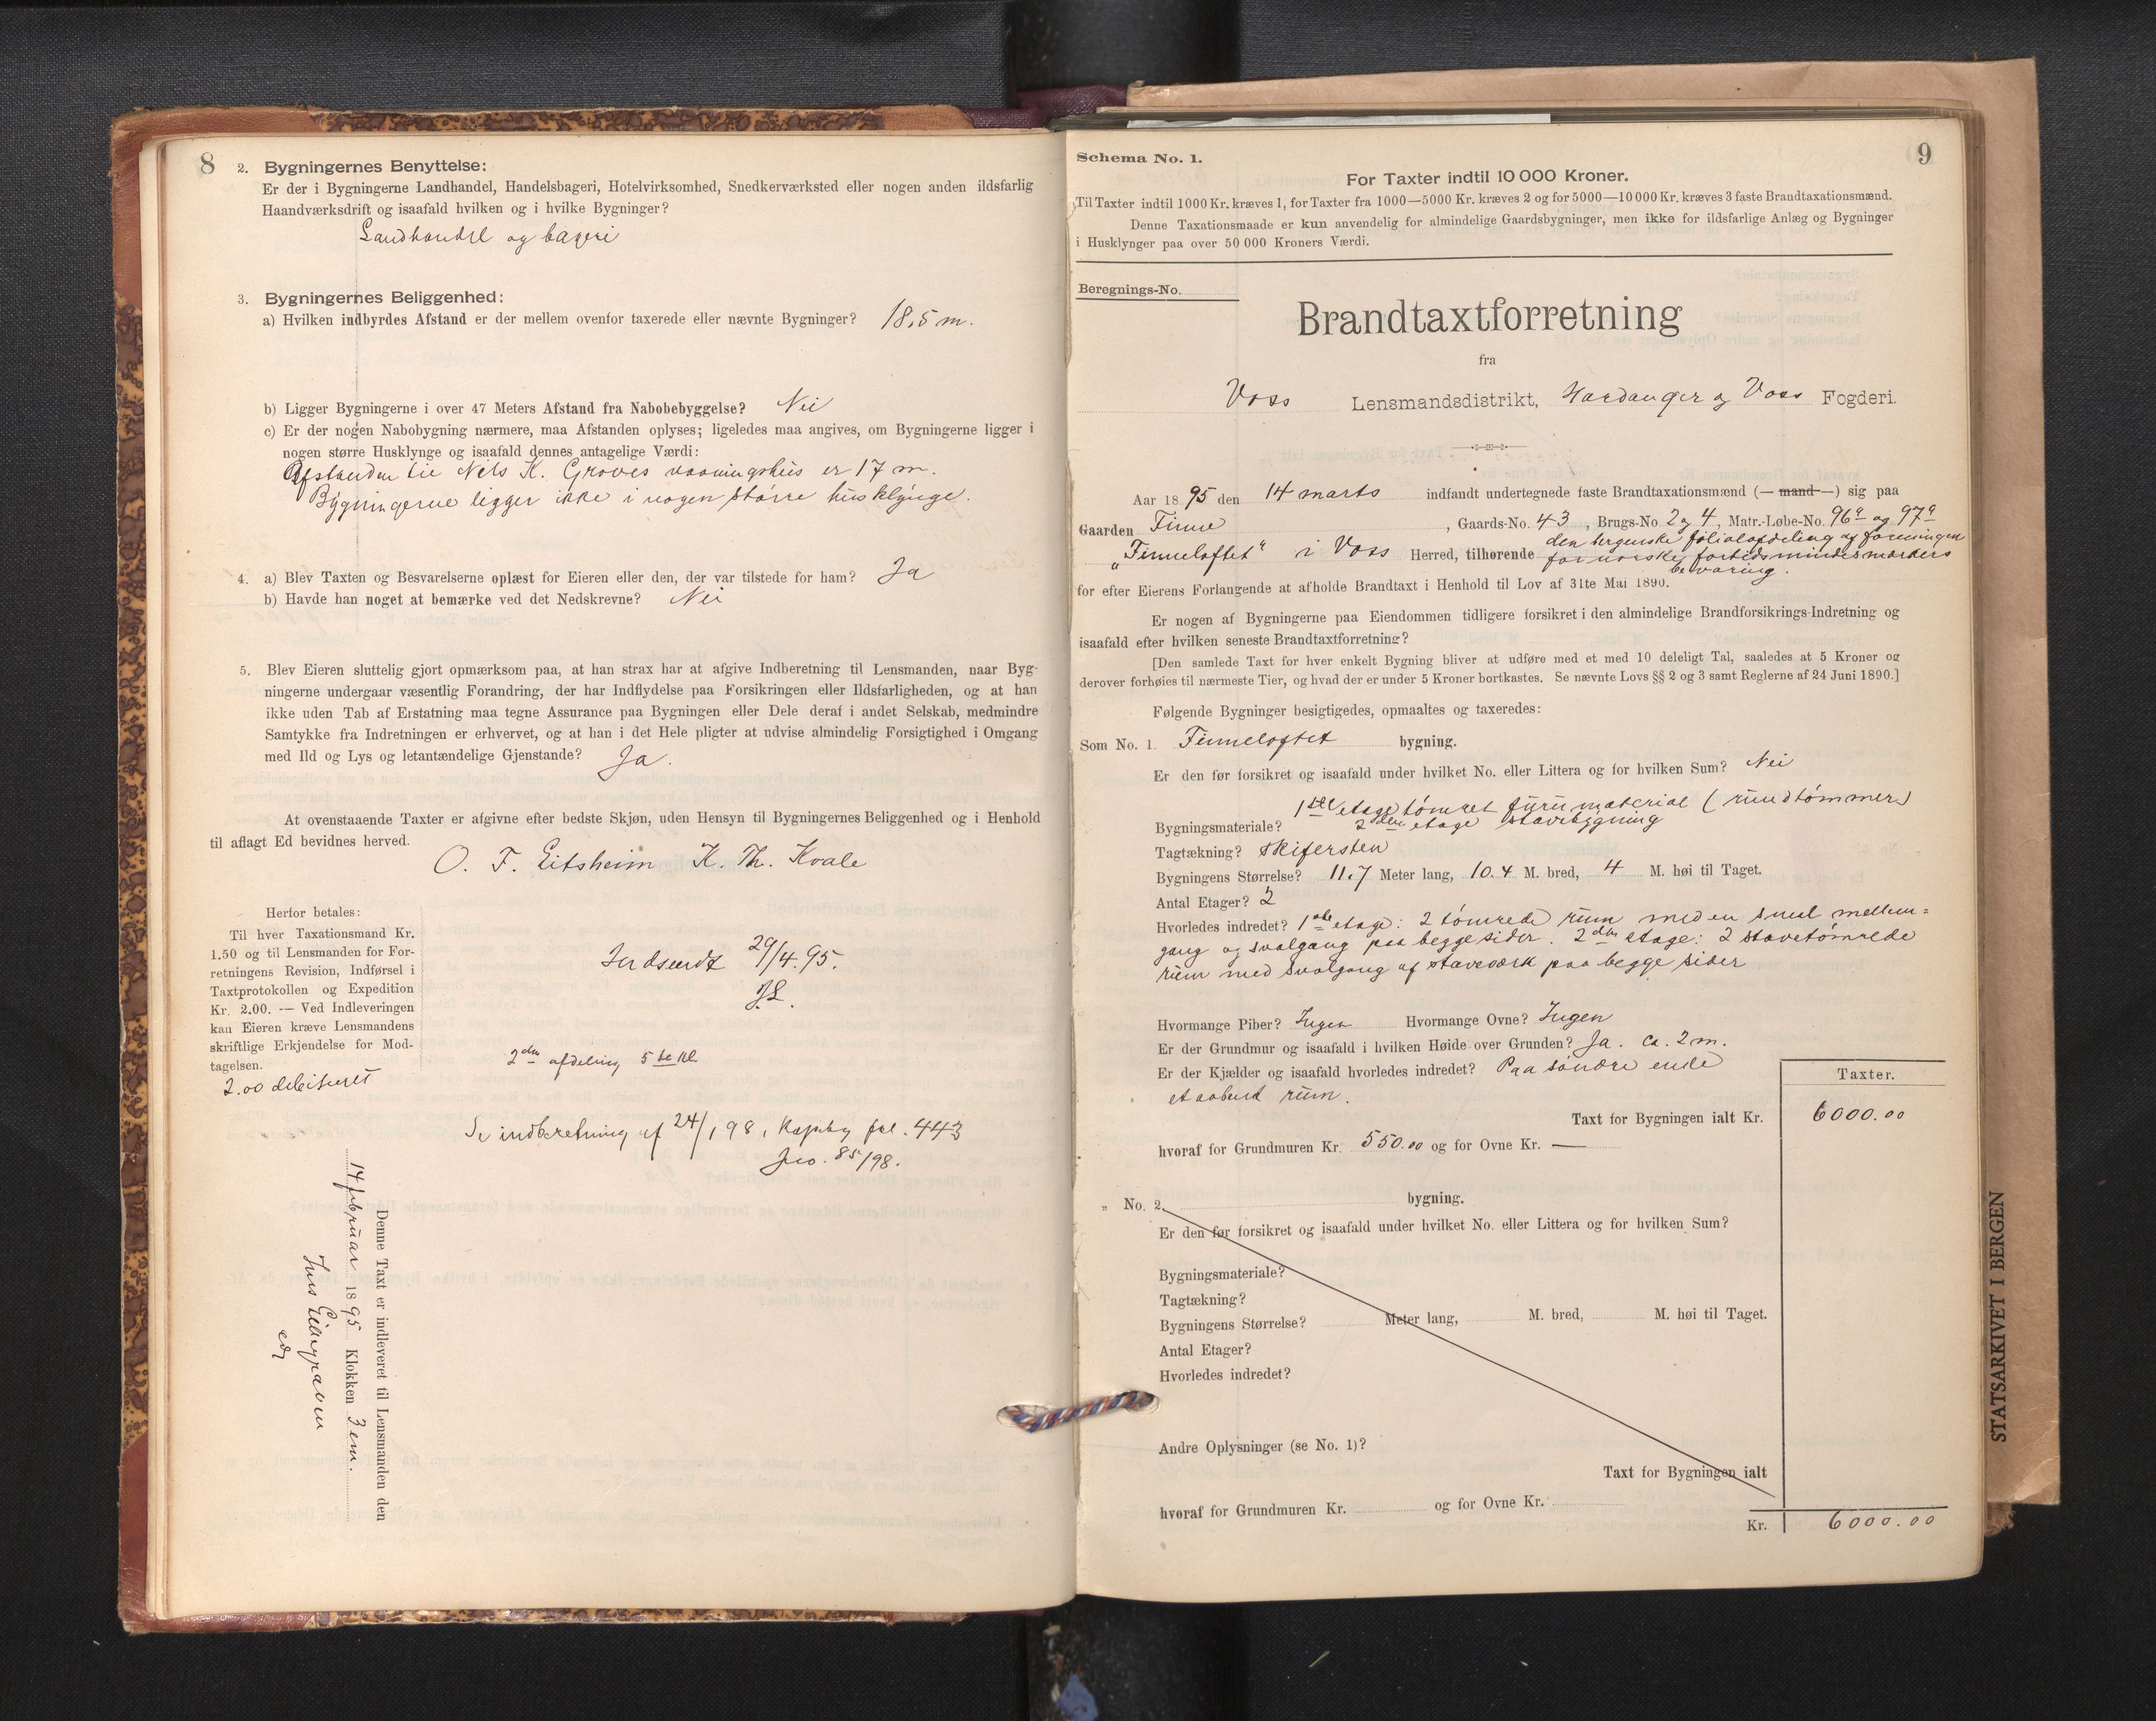 8
2. Bygningernes Benyttelse:
Er der i Bygningerne Landhandel, Handelsbageri, Hotelvirksomhed, Snedkerværksted eller nogen anden ildsfarlig
Haandværksdrift og isaafald hvilken og i hvilke Bygninger?
Landhandel og bageri
3. Bygningernes Beliggenhed:
a) Hvilken indbyrdes Afstand er der mellem ovenfor taxerede eller nævnte Bygninger? 18,5 m.
b) Ligger Bygningerne i over 47 Meters Afstand fra Nabobebyggelse? Nei
c) Er der nogen Nabobygning nærmere, maa Afstanden oplyses; ligeledes maa angives, om Bygningerne ligger i
nogen større Husklynge og isaafald dennes antagelige Værdi:
Afstanden til Nels K. Groves vaaningshus er 17 m.
Bygningerne ligger ikke i nogen større husklynge.
4. a) Blev Taxten og Besvarelserne oplæst for Eieren eller den, der var tilstede for ham? Ja
b) Havde han noget at bemærke ved det Nedskrevne? Nei
5. Blev Eieren sluttelig gjort opmærksom paa, at han strax har at afgive Indberetning til Lensmanden, naar Byg-
ningerne undergaar væsentlig Forandring, der har Indflydelse paa Forsikringen eller Ildsfarligheden, og at han
ikke uden Tab af Erstatning maa tegne Assurance paa Bygningen eller Dele deraf i andet Selskab, medmindre
Samtykke fra Indretningen er erhvervet, og at han i det Hele pligter at udvise almindelig Forsigtighed i Omgang
med Ild og Lys og letantændelige Gjenstande? Ja.
At ovenstaaende Taxter er afgivne efter bedste Skjøn, uden Hensyn til Bygningernes Beliggenhed og i Henhold
til aflagt Ed bevidnes herved.
O. T. Eitsheim K. Th. Kvale
Herfor betales:
Til hver Taxationsmand Kr.
1.50 og til Lensmanden for For-
retningens Revision, Indførsel i
Taxtprotokollen og Expedition
Kr. 2.00. — Ved Indleveringen
kan Eieren kræve Lensmandens
skriftlige Erkjendelse for Mod-
tagelsen.
2.00 debiteret
Indsendt 29/4.95.
2den afdeling 5te Kl.
Se indberetning af 24/1 98, Kopiby fol. 443
Jno. 85/98.
Denne Taxt er indleveret til Lensmanden den
14 februar 1895 Klokken 3 em.
9
Schema No. 1.
For Taxter indtil 10 000 Kroner.
Til Taxter indtil 1000 Kr. kræves 1, for Taxter fra 1000—5000 Kr. kræves 2 og for 5000—10000 Kr. kræves 3 faste Brandtaxationsmænd.
Denne Taxationsmaade er kun anvendelig for almindelige Gaardsbygninger, men ikke for ildsfarlige Anlæg og Bygninger
i Husklynger paa over 50 000 Kroners Værdi.
Beregnings-No.
Brandtaxtforretning
fra
Voss Lensmandsdistrikt, Hardanger og Voss Fogderi.
Aar 1895 den 14 marts indfandt undertegnede faste Brandtaxationsmænd (— mand —) sig paa
Gaarden Finne, Gaards-No. 43, Brugs-No. 2 og 4, Matr.-Løbe-No. 96a og 97a
„Finneloftet“ i Voss Herred, tilhørende den bergenske filialafdeling af foreningen
for norske fortidsmindesmærkers
bevaring.
for efter Eierens Forlangende at afholde Brandtaxt i Henhold til Lov af 31te Mai 1890.
Er nogen af Bygningerne paa Eiendommen tidligere forsikret i den almindelige Brandforsikrings-Indretning og
isaafald efter hvilken seneste Brandtaxtforretning?
[Den samlede Taxt for hver enkelt Bygning bliver at udføre med et med 10 deleligt Tal, saaledes at 5 Kroner og
derover forhøies til nærmeste Tier, og hvad der er under 5 Kroner bortkastes. Se nævnte Lovs §§ 2 og 3 samt Reglerne af 24 Juni 1890.]
Følgende Bygninger besigtigedes, opmaaltes og taxeredes:
Som No. 1. Finneloftet bygning.
Er den før forsikret og isaafald under hvilket No. eller Littera og for hvilken Sum? Nei
1ste etage tømret furumaterial (rundtømmer)
Bygningsmateriale? 2den etage stavbygning
Tagtækning? Skifersten
Bygningens Størrelse? 11.7 Meter lang, 10.4 M. bred, 4 M. høi til Taget.
Antal Etager? 2
Hvorledes indret? 1ste etage: 2 tømrede rum med en smal mellem=
gang og svalgang paa begge sider. 2den etage: 2 stavetømrede
rum med svalgang af staveværk paa begge sider
Hvormange Piber? Ingen Hvormange Ovne? Ingen
Er der Grundmur og isaafald i hvilken Høide over Grunden? Ja. ca. 2 m.
Er der Kjælder og isaafald hvorledes indredet? Paa søndre ende
et aabent rum.
Taxter.
Taxt for Bygningen ialt Kr. 6000.00
hvoraf for Grundmuren Kr. 550.00 og for Ovne Kr. —
„ No. 2. bygning.
Er den før forsikret og isaafald under hvilket No. eller Littera og for hvilken Sum?
Bygningsmateriale?
Tagtækning?
Bygningens Størrelse? Meter lang, M. bred, M. høi til Taget.
Antal Etager?
Hvorledes indredet?
Andre Oplysninger (se No. 1)?
Taxt for Bygningen ialt
hvoraf for Grundmuren Kr. og for Ovne Kr.
Kr. 6000.00
STATSARKIVET I BERGEN